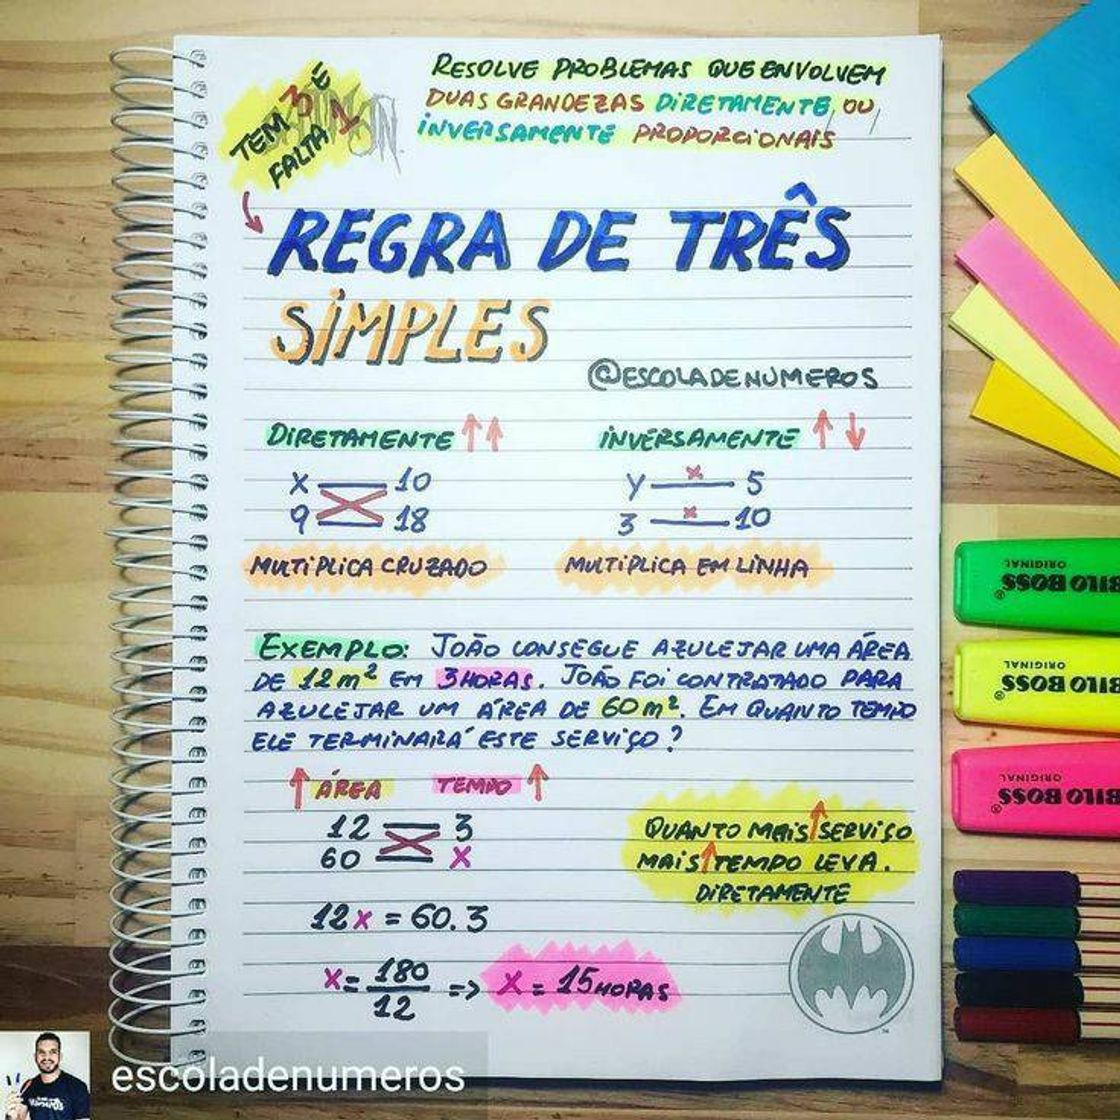 TEM 3 E
FALTA 1
RESOLVE PROBLEMAS QUE ENVOLVEM
DUAS GRANDEZAS DIRETAMENTE, OU,
INVERSAMENTE PROPORCIONAIS
REGRA DE TRÊS
SIMPLES
@ESCOLADENUMEROS
DIRETAMENTE ↑↑
INVERSAMENTE ↑↓
X 10
9 18
Y x 5
3 x 10
MULTIPLICA CRUZADO
MULTIPLICA EM LINHA
EXEMPLO: JOÃO CONSEGUE AZULEJAR UMA ÁREA
DE 12m² EM 3 HORAS. JOÃO FOI CONTRATADO PARA
AZULEJAR UM ÁREA DE 60m². EM QUANTO TEMPO
ELE TERMINARÁ ESTE SERVIÇO?
↑ ÁREA TEMPO ↑
12 3
60 X
QUANTO MAIS ↑ SERVIÇO
MAIS ↑ TEMPO LEVA.
DIRETAMENTE
12x = 60.3
X = 180/12 => X = 15 HORAS
BILO BOSS®
ORIGINAL
BILO BOSS®
ORIGINAL
BILO BOSS®
ORIGINAL
escoladenumeros